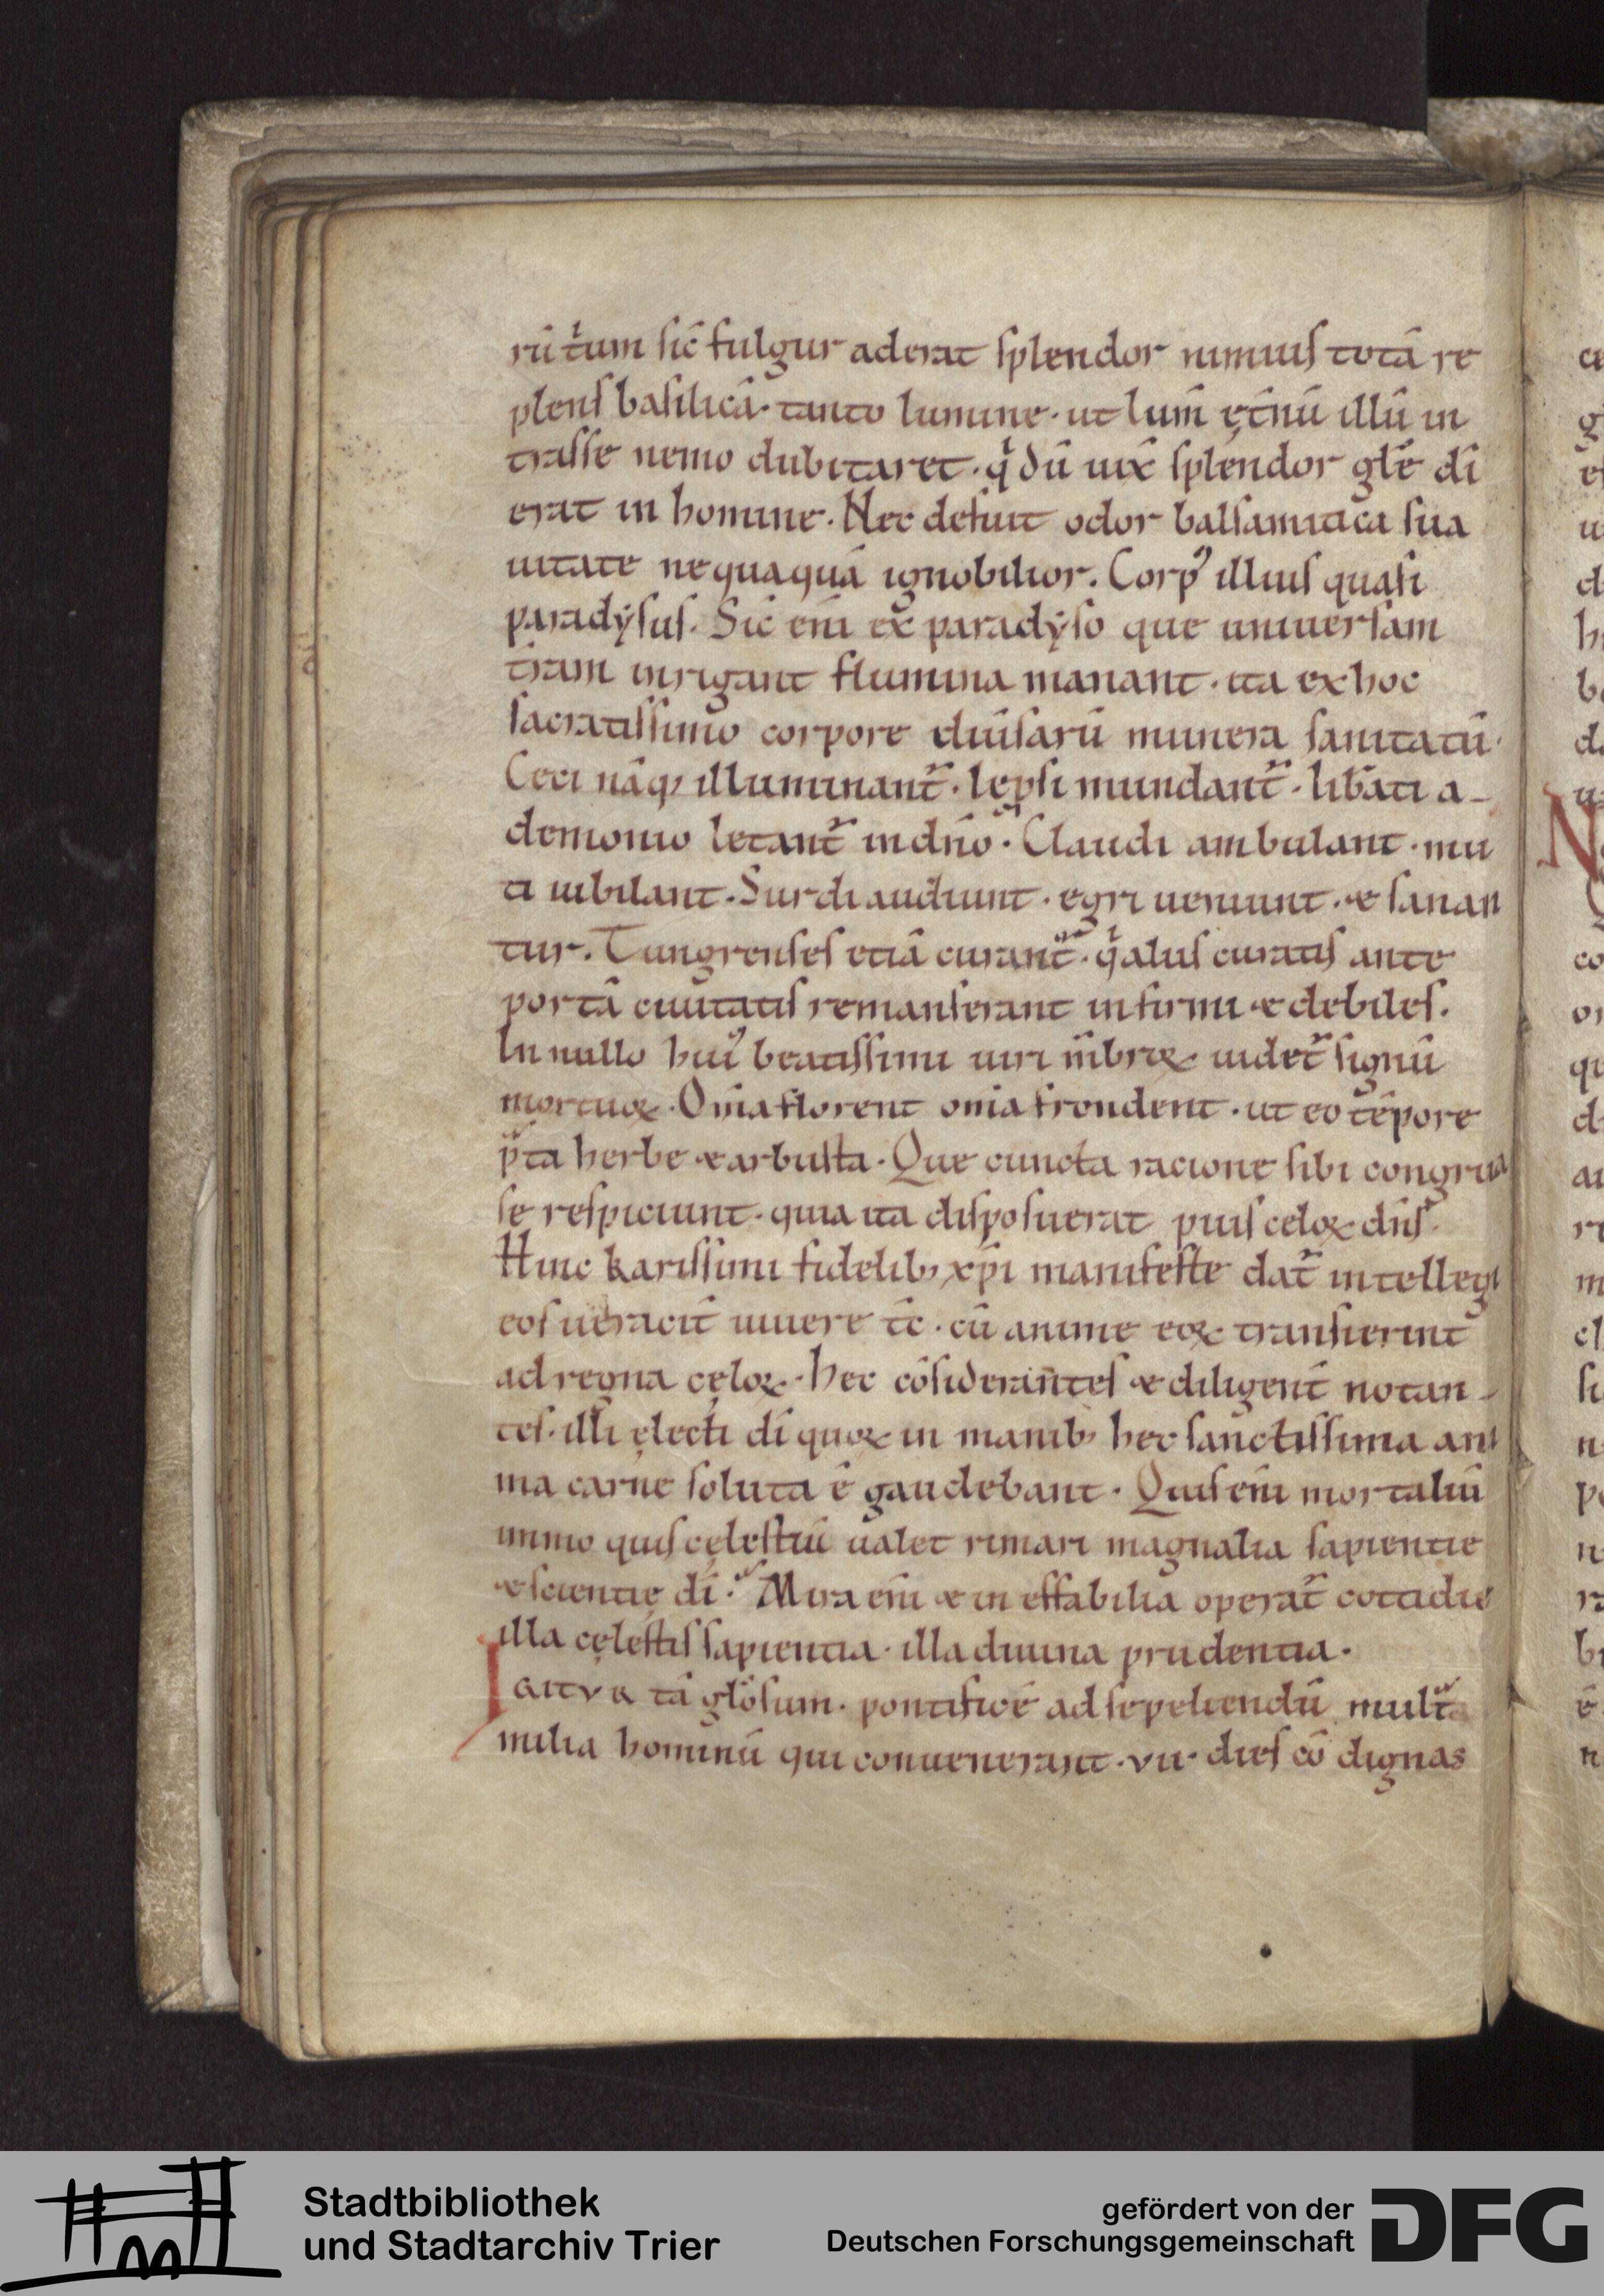 rū t̄um sic̄ fulgur aderat splendor nimius totā re
plens basilicā· tanto lumine· ut lum̄ ęt̄nū illū in
trasse nemo dubitaret· qͥ dū uix̄ splendor gl̄e dī
erat in homine· Nec defuit odor balsamitica sua
uitate nequaquā ignobilior. Corp᾽ illius quasi
paradẏsus. Sic eni̅ ex paradẏso que uniuersam
t̄ram inrigant flumina manant· ita ex hoc
sacratissimo corpore diūsarū munera sanitatū·
Ceci nāq; illuminant̄· lep̱si mundant̄· lib̄ati a-
demonio letant̄ in dn̄o· Claudi ambulant· mu
ti iubilant· Surdi audiunt· egri ueniunt· & sanan
tur. Tungrenses etiā curant̄· qͥ aliis curatis ante
portā ciuitatis remanserant infirmi & debiles.
In nullo hui᾽ beatissimi uiri m̄broꝝ uidet̄ signū
mortuoꝝ· Om̄ia florent om̄ia frondent· ut eo tēpore
p̄ta herbe & arbusta· Que cuncta racione sibi congrua
se respiciunt· quia ita disposuerat pius celoꝝ dn̄s·
Hinc karissimi fidelib; xp̄i manifeste dat̄ intellegi
eos ueracit̄ uiuere tc̄· cū anime eoꝝ transierint
ad regna cęloꝝ· Hec cōsiderantes & diligent̄ notan-
tes· illi ęlecti dī quoꝝ in manib; hec sanctissima ani
ma carne soluta ē gaudebant· Quis eni̅ mortaliū
immo quis cęlestiū ualet rimari magnalia sapientie
& scientię dī? Mira eni̅ & ineffabilia operat̄ cottidie
illa cęlestis sapientia· illa diuina prudentia·
Igitur tā gl̄osum· pontificē ad sepeliendū multa
milia hominū qui conuenerant· vii· dies cō dignas
Stadtbibliothek
und Stadtarchiv Trier
gefördert von der
Deutschen Forschungsgemeinschaft
DFG